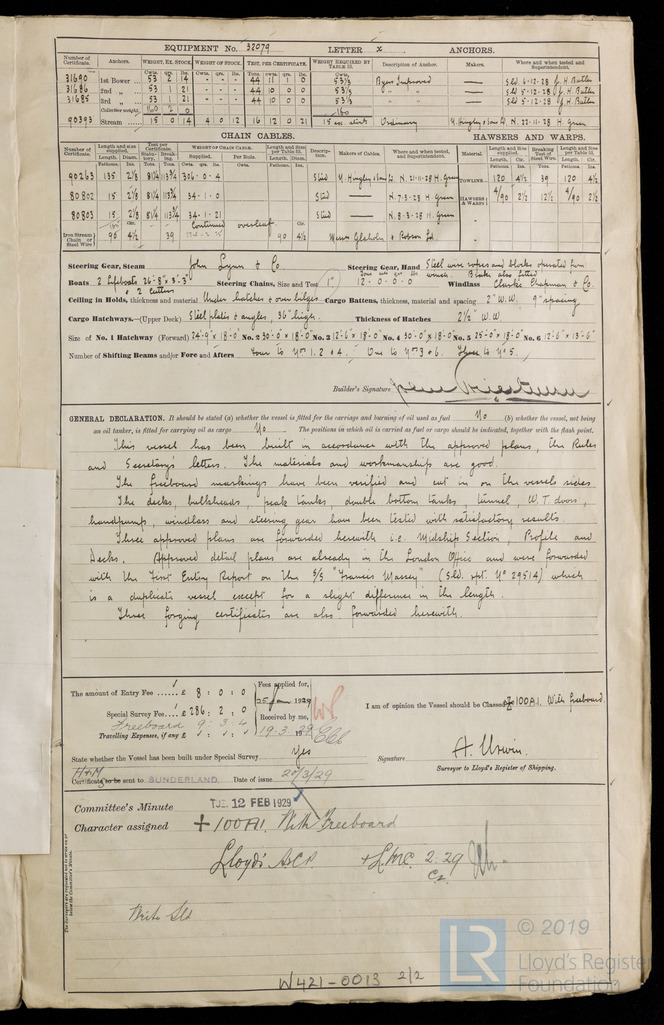 EQUIPMENT No. 32079 LETTER x ANCHORS.
Number of Certificate. Anchors. WEIGHT, EX. STOCK. WEIGHT OF STOCK. TEST, PER CERTIFICATE. WEIGHT REQUIRED BY TABLE 31. Description of Anchor. Makers. Where and when tested and Superintendent.
Cwts. qrs. lbs. Cwts. qrs. lbs. Tons. cwts. qrs. lbs. Cwts.
31690 1st Bower 53 2 14 - - - 44 11 1 0 53½ Byers Improved — Sld 6-12-28 J. H. Butler
31686 2nd „ 53 1 21 - - - 44 10 0 0 53½ " " — Sld 5-12-28 J. H. Butler
31685 3rd „ 53 1 21 - - - 44 10 0 0 53½ — Sld 5-12-28 J. H. Butler
Collective weight. 160 2 0 160
90393 Stream 15 0 14 4 0 12 16 12 0 21 15 Ordinary N. 22-11-28 H. Green
CHAIN CABLES. HAWSERS AND WARPS.
Number of Certificate. Length and size supplied. Test per Certificate. WEIGHT OF CHAIN CABLE. Length and Size per Table 31. Description. Makers of Cables. Where and when tested, and Superintendent. Material. Length and Size supplied. Breaking Test of Steel Wire. Length and Size per Table 31.
Fathoms. Diam. Statutory. Breaking. Supplied. Per Rule. Length. Diam. Length. Cir. Length. Cir.
90263 135 2⅛ 81¼ 113¾ 306-0-4 Stud N. 21-11-28 H. Green TOWLINE 120 4½ 39 120 4½
80802 15 2⅛ 81¼ 113¾ 34-1-0 Stud — N. 7-3-28 H. Green HAWSERS & WARPS 4/90 2½ 12½ 4/90 2½
80803 15 2⅛ 81¼ 113¾ 34-1-21 Stud — N. 8-3-28 H. Green
Continued overleaf
Iron Stream Chain or Steel Wire 90 4½ 39 90 4½ Messrs Glaholm & Robson Ld
Steering Gear, Steam John Lynn & Co Steering Gear, Hand Steel wire ropes and blocks operated from winch. Brake also fitted
Boats 2 Lifeboats 26'-8"x 8'-3" & 2 cutters Steering Chains, Size and Test 1" 12-0-0-0 Windlass Clarke Chapman & Co.
Ceiling in Holds, thickness and material Under hatches & over bilges. Cargo Battens, thickness, material and spacing 2" W.W. 9" spacing
Cargo Hatchways.—(Upper Deck) Steel plates & angles, 36" high. Thickness of Hatches 2½" W.W
Size of No. 1 Hatchway (Forward) 24'-9" x 18'-0" No. 2 30'-0" x 18'-0" No. 3 12'-6" x 18'-0" No. 4 30'-0" x 18'-0" No. 5 25'-0" x 18'-0" No. 6 12'-6" x 13'-6"
Number of Shifting Beams and/or Fore and Afters Four to Nos 1. 2 & 4. One to Nos 3 & 6. Three to No 5.
Builder's Signature
GENERAL DECLARATION. It should be stated (a) whether the vessel is fitted for the carriage and burning of oil used as fuel No (b) whether the vessel, not being
an oil tanker, is fitted for carrying oil as cargo No The positions in which oil is carried as fuel or cargo should be indicated, together with the flash point.
This vessel has been built in accordance with the approved plans, the Rules
and Secretary's letters. The materials and workmanship are good.
The freeboard markings have been verified and cut in on the vessels sides.
The decks, bulkheads, peak tanks, double bottom tanks, tunnel, W.T. doors,
handpump, windlass and steering gear have been tested with satisfactory results.
Three approved plans are forwarded herewith i.e. Midship Section, Profile and
Decks. Approved detail plans are already in the London Office and were forwarded
with the First Entry Report on the S/S "Francis Massey" (Sld. rpt. No 29514) which
is a duplicate vessel except for a slight difference in the length.
Three forging certificates are also forwarded herewith.
The amount of Entry Fee £ 8 : 0 : 0 Fees applied for, 25 Jan 1929
Special Survey Fee £ 286 : 2 : 0 Received by me,
Freeboard 9 : 3 : 4
Travelling Expenses, if any £ : : 19.3.1929
I am of opinion the Vessel should be Classed 100A1. With freeboard
State whether the Vessel has been built under Special Survey Yes Signature A. Urwin.
Surveyor to Lloyd's Register of Shipping.
Certificate to be sent to SUNDERLAND. Date of issue 20/3/29
Committee's Minute TUE. 12 FEB 1929
Character assigned + 100A1. With Freeboard
Lloyd's A&CP. + LMC. 2.29
CL
Write Sld
W421-0013 2/2
© 2019
LR Lloyd's Register
Foundation